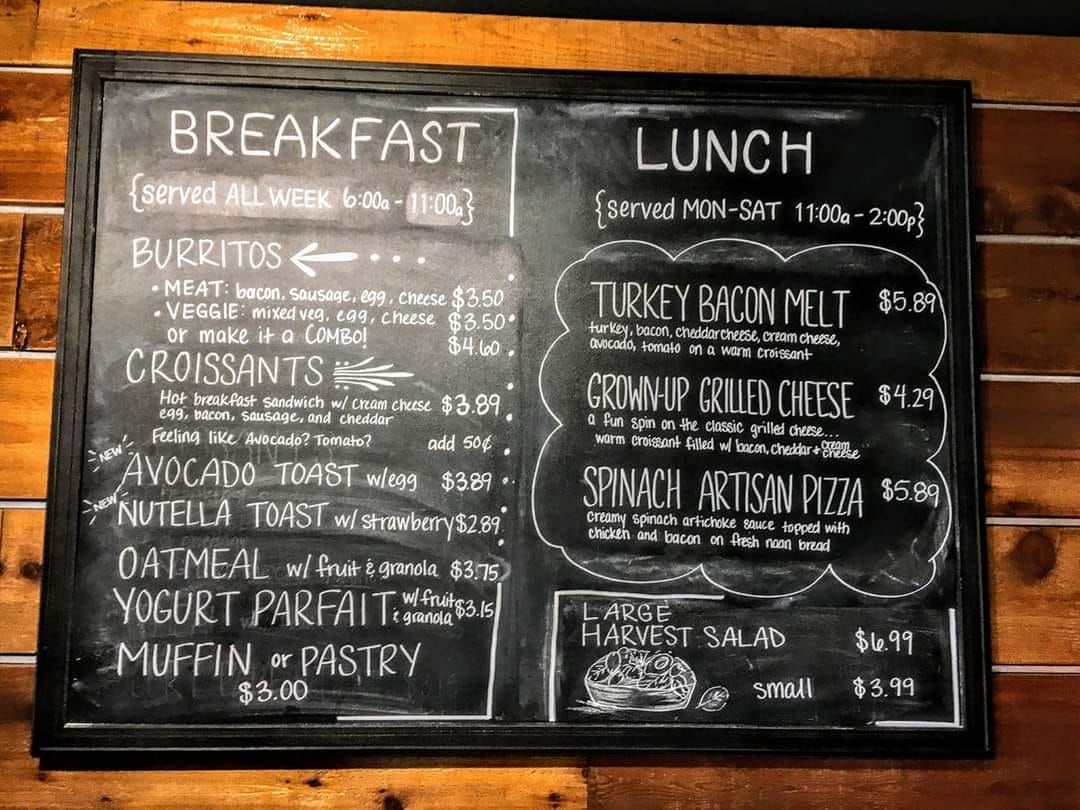 BREAKFAST
{served ALL WEEK 6:00a - 11:00a}
BURRITOS
• MEAT: bacon, sausage, egg, cheese $3.50
• VEGGIE: mixed veg, egg, cheese $3.50
or make it a COMBO! $4.60
CROISSANTS
Hot breakfast sandwich w/ cream cheese $3.89
egg, bacon, sausage, and cheddar
Feeling like Avocado? Tomato? add 50¢
NEW
AVOCADO TOAST w/egg $3.89
NEW
NUTELLA TOAST w/ strawberry $2.89
OATMEAL w/ fruit & granola $3.75
YOGURT PARFAIT: w/ fruit & granola $3.15
MUFFIN or PASTRY
$3.00
LUNCH
{served MON-SAT 11:00a - 2:00p}
TURKEY BACON MELT $5.89
turkey, bacon, cheddar cheese, cream cheese,
avocado, tomato on a warm croissant
GROWN-UP GRILLED CHEESE $4.29
a fun spin on the classic grilled cheese...
warm croissant filled w/ bacon, cheddar + cream cheese
SPINACH ARTISAN PIZZA $5.89
creamy spinach artichoke sauce topped with
chicken and bacon on fresh naan bread
LARGE
HARVEST SALAD $6.99
small $3.99